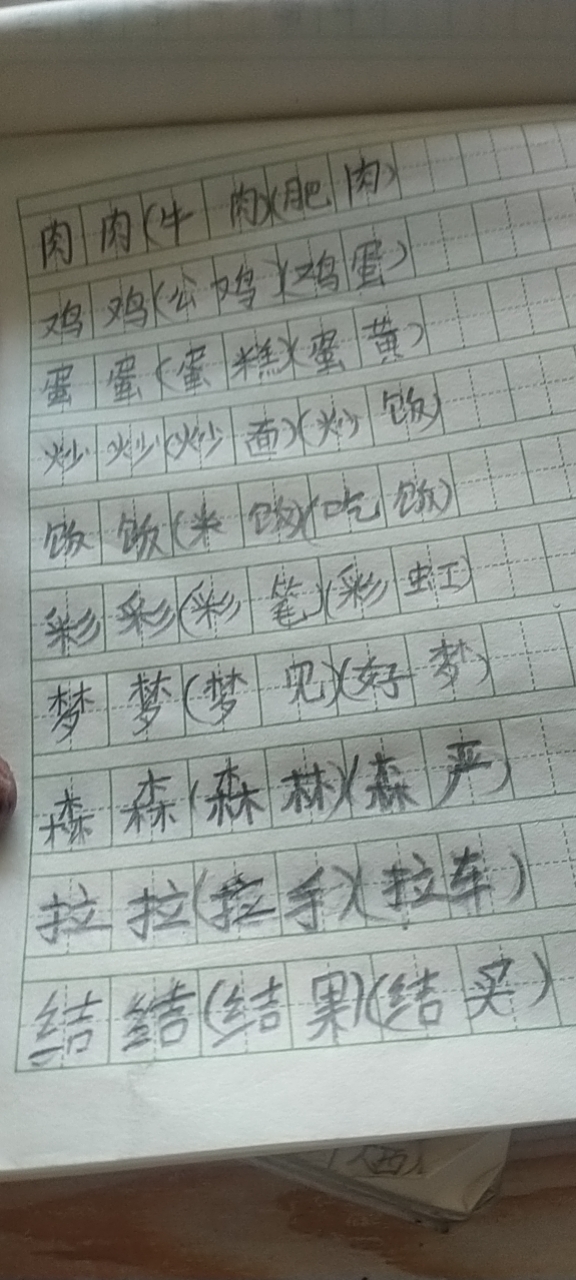 肉肉(牛肉)(肥肉)
鸡鸡(公鸡)(鸡蛋)
蛋蛋(蛋糕)(蛋黄)
炒炒(炒面)(炒饭)
饭饭(米饭)(吃饭)
彩彩(彩笔)(彩虹)
梦梦(梦见)(好梦)
森森(森林)(森严)
拉拉(拉手)(拉车)
结结(结果)(结实)